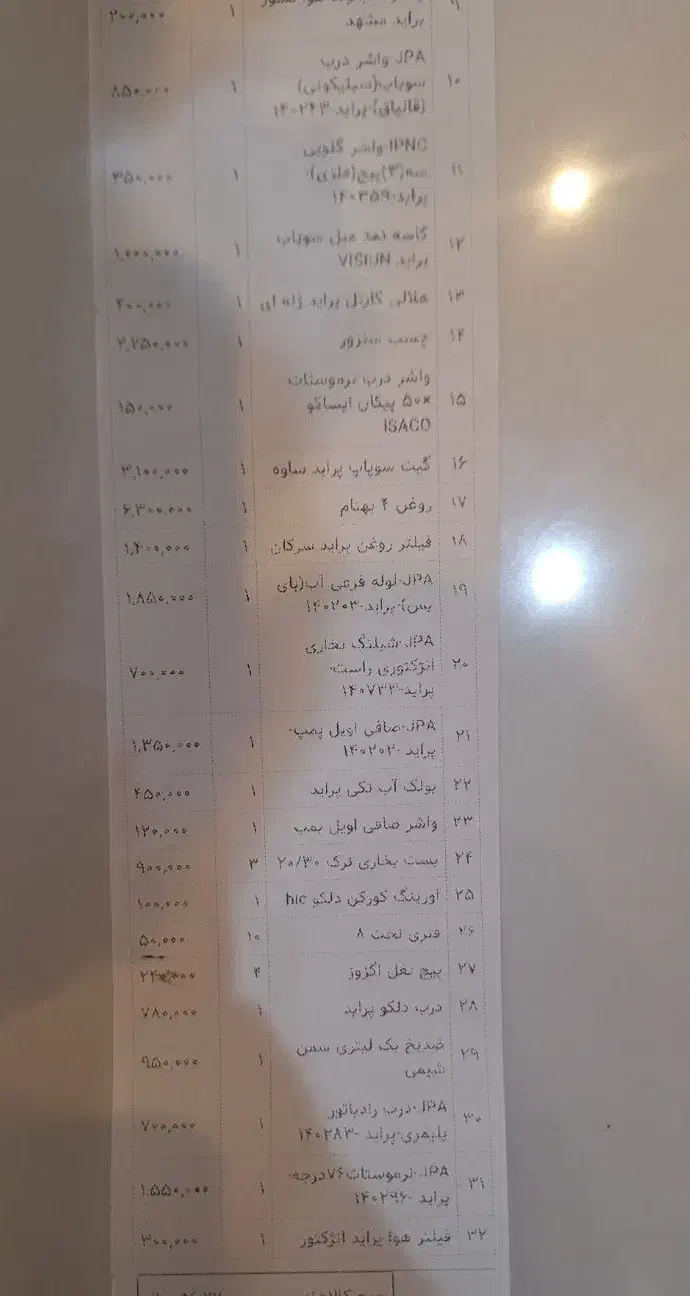 ۹ پراید مشهد ۱ ۲۰۰,۰۰۰
JPA-واشر درب
۱۰ سوپاپ(سیلیکونی) ۱ ۸۵۰,۰۰۰
(قالپاق)-پراید-۱۴۰۲۴۳
IPNC-واشر گلویی
۱۱ سه(۳)پیچ(فلزی)- ۱ ۳۵۰,۰۰۰
پراید-۱۴۰۳۵۹
۱۲ کاسه نمد میل سوپاپ ۱
پراید VISIUN
۱۳ هلالی کارتل پراید ژله ای ۱ ۴۰۰,۰۰۰
۱۴ چسب سنزور ۱ ۲,۲۵۰,۰۰۰
واشر درب ترموستات
۱۵ ۵۰x پیکان ایساکو ۱ ۱۵۰,۰۰۰
ISACO
۱۶ گیت سوپاپ پراید ساوه ۱ ۳,۱۰۰,۰۰۰
۱۷ روغن ۴ بهنام ۱ ۶,۳۰۰,۰۰۰
۱۸ فیلتر روغن پراید سرکان ۱ ۱,۴۰۰,۰۰۰
۱۹ JPA-لوله فرعی آب(بای ۱ ۱,۸۵۰,۰۰۰
پس)-پراید-۱۴۰۲۰۳
JPA-شیلنگ بخاری
۲۰ انژکتوری راست- ۱ ۷۰۰,۰۰۰
پراید-۱۴۰۷۳۳
۲۱ JPA-صافی اویل پمپ- ۱ ۱,۳۵۰,۰۰۰
پراید -۱۴۰۲۰۲
۲۲ پولک آب تکی پراید ۱ ۴۵۰,۰۰۰
۲۳ واشر صافی اویل پمپ ۱ ۱۲۰,۰۰۰
۲۴ بست بخاری ترک ۲۰/۳۰ ۳ ۹۰۰,۰۰۰
۲۵ اورینگ کورکن دلکو hic ۱ ۱۰۰,۰۰۰
۲۶ فنری تخت ۸ ۱۰ ۵۰,۰۰۰
۲۷ پیچ نعل اگزوز ۴
۲۸ درب دلکو پراید ۱ ۷۸۰,۰۰۰
۲۹ ضدیخ یک لیتری سمن ۱ ۹۵۰,۰۰۰
شیمی
۳۰ JPA-درب رادیاتور ۱ ۷۰۰,۰۰۰
پلیمری-پراید -۱۴۰۲۸۳
۳۱ JPA-ترموستات۷۶درجه- ۱ ۱,۵۵۰,۰۰۰
پراید -۱۴۰۲۹۶
۳۲ فیلتر هوا پراید انژکتور ۱ ۳۰۰,۰۰۰